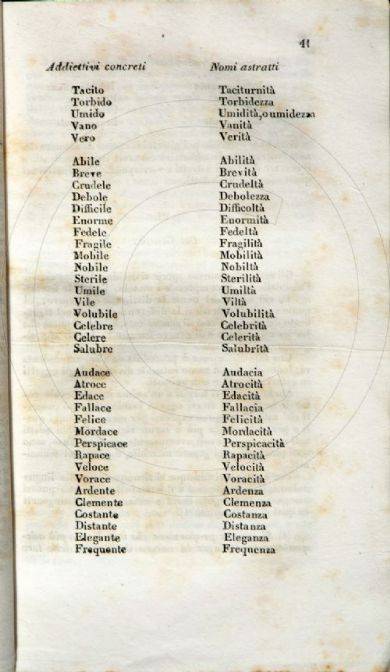 41
Addiettivi concreti Nomi astratti
Tacito Taciturnità
Torbido Torbidezza
Umido Umidità, o umidezza
Vano Vanità
Vero Verità
Abile Abilità
Breve Brevità
Crudele Crudeltà
Debole Debolezza
Difficile Difficoltà
Enorme Enormità
Fedele Fedeltà
Fragile Fragilità
Mobile Mobilità
Nobile Nobiltà
Sterile Sterilità
Umile Umiltà
Vile Viltà
Volubile Volubilità
Celebre Celebrità
Celere Celerità
Salubre Salubrità
Audace Audacia
Atroce Atrocità
Edace Edacità
Fallace Fallacia
Felice Felicità
Mordace Mordacità
Perspicace Perspicacità
Rapace Rapacità
Veloce Velocità
Vorace Voracità
Ardente Ardenza
Clemente Clemenza
Costante Costanza
Distante Distanza
Elegante Eleganza
Frequente Frequenza